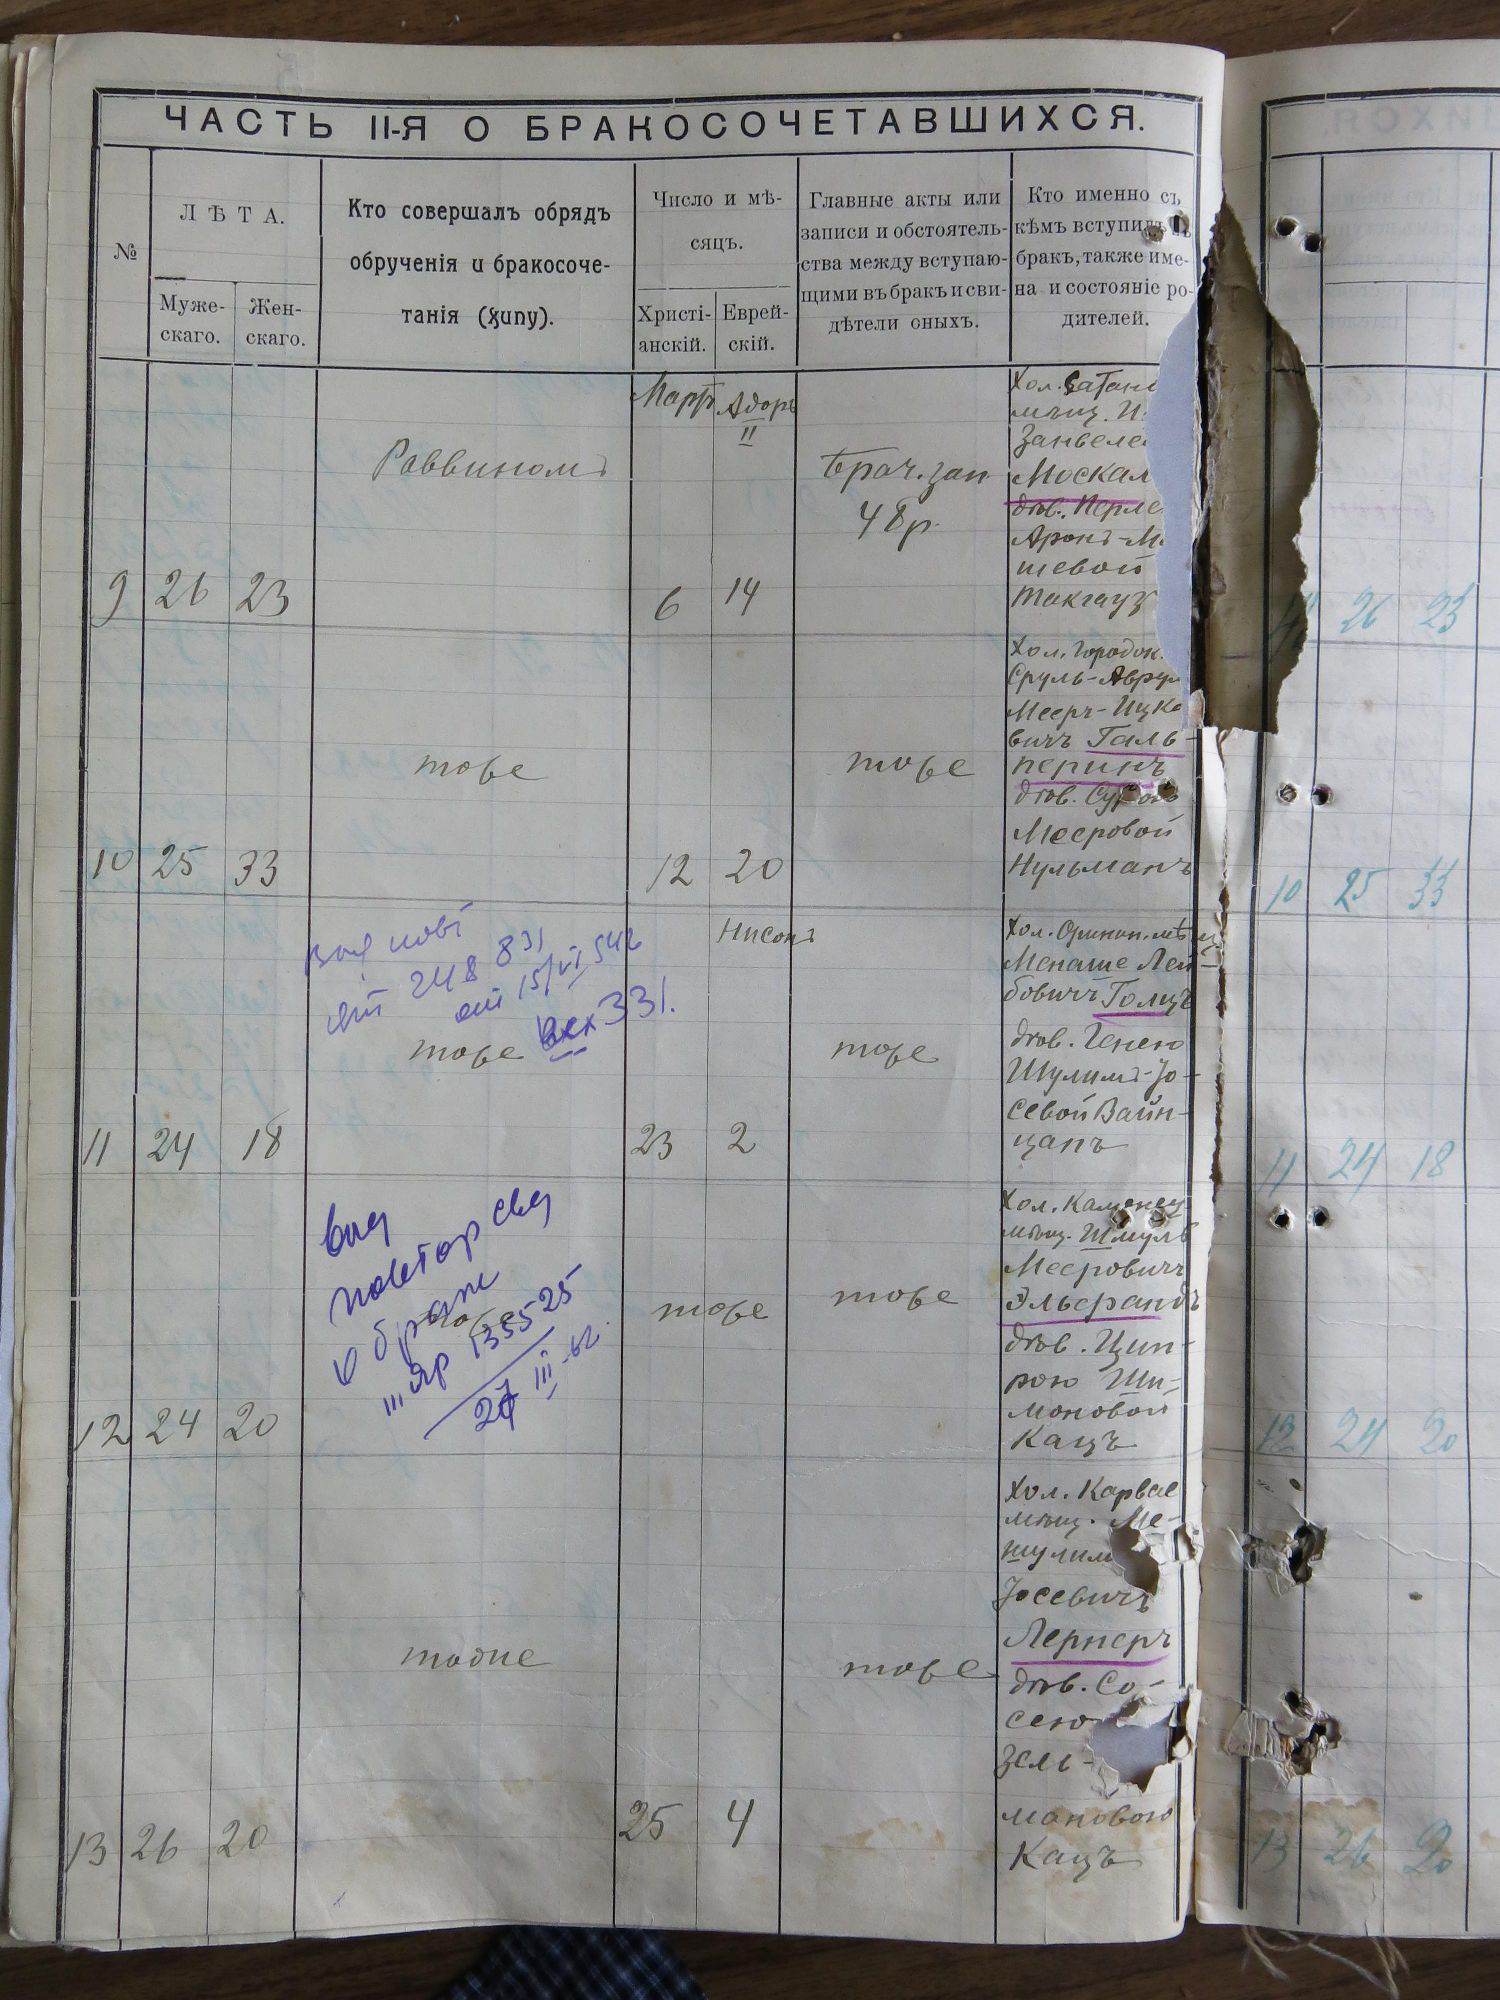 ЧАСТЬ II-Я О БРАКОСОЧЕТАВШИХСЯ.
№
ЛѢТА.
Муже-
скаго.
Жен-
скаго.
Кто совершалъ обрядъ
обрученія и бракосоче-
танія (хупу).
Число и мѣ-
сяцъ.
Христі-
анскій.
Еврей-
скій.
Главные акты или
записи и обстоятель-
ства между вступаю-
щими въ бракъ и сви-
дѣтели оныхъ.
Кто именно съ
кѣмъ вступилъ
бракъ, также име-
на и состояніе ро-
дителей.
9 26 23
Раввиномъ
Мартъ
6
Адоръ
II
14
Брач. зап.
48 р.
Хол.
мѣщ.
Занвеле
Москал
дѣв. Перле
Аронъ-М
шевой
Токгауз
10 25 33
тоже
12 20
тоже
Хол. Городок.
Сруль-Авру
Мееръ-Ицко
вичъ Галь-
перинъ
дѣв.
Мееровой
Нульманъ
11 24 18
248831
от 15/VI 542
вх 331.
тоже
Нисонъ
23 2
тоже
Хол.
Менаше Лей-
бовичъ Голцъ
дѣв. Генею
Шулимъ-Іо-
севой Вайн-
цапъ
12 24 20
вид
повтор свид
о браке
III ЯР 135525
27 III-62
тоже
тоже
Хол. Каменец
мѣщ. Шмуль
Мееровичъ
дѣв. Цип-
рою Ши-
моновой
Кацъ
13 26 20
тоже
25 4
тоже
Хол. Карвас
мѣщ. Ме-
шулим
Іосевичъ
Лернеръ
дѣв. Со-
сею
Зель-
мановою
Кацъ
26 23
10 25 33
11 24 18
12 24 20
13 26 20